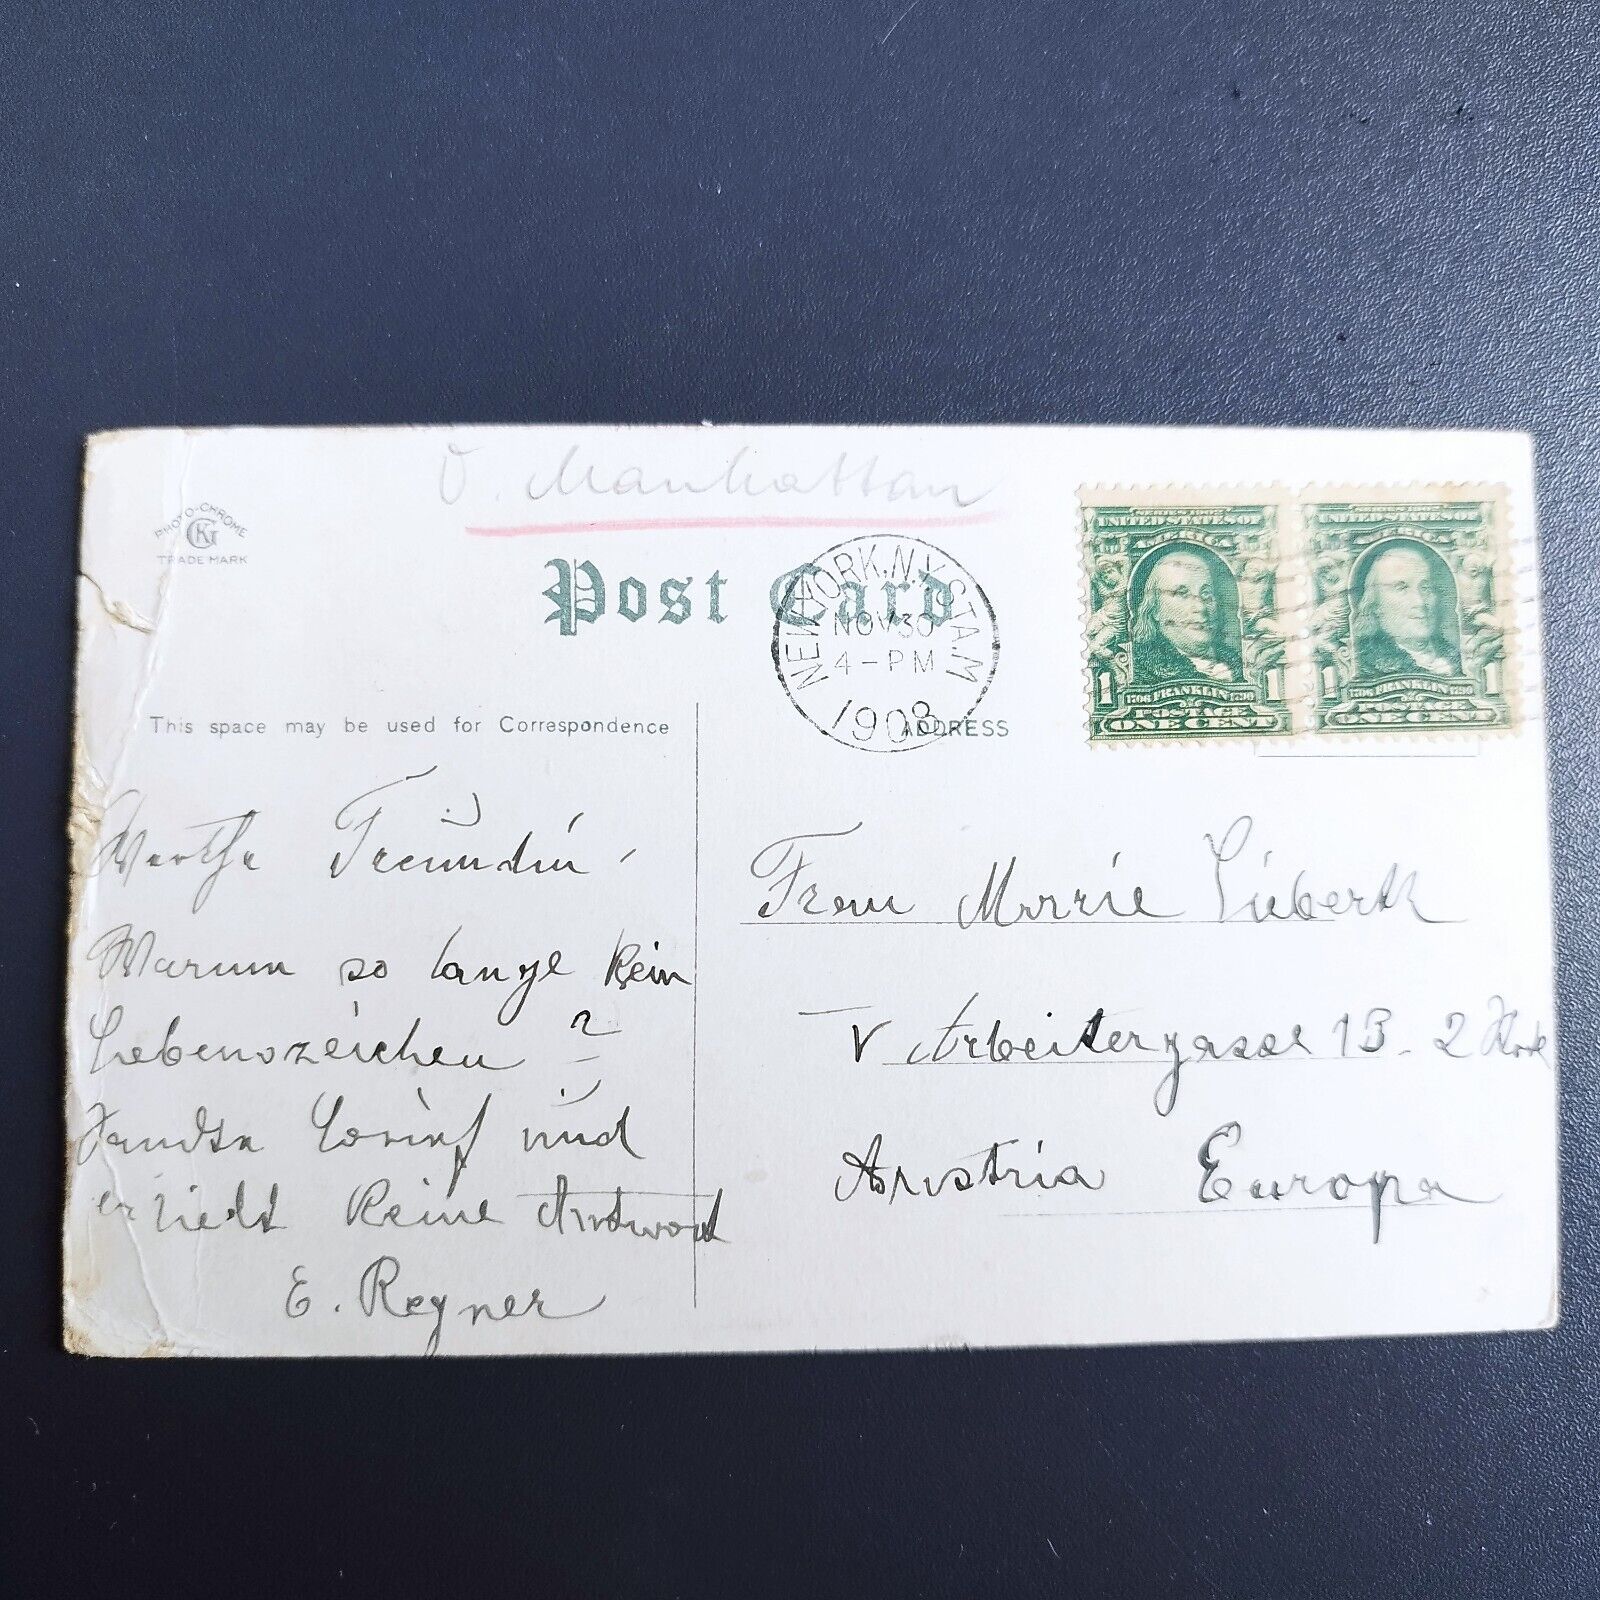 V. Manhattan
PHOTO-CHROME
GK
TRADE MARK
Post Card
NEW YORK, N.Y. STA. M
NOV 30
4-PM
1908
SERIES 1902
UNITED STATES OF
AMERICA
1 1706 FRANKLIN 1790 1
POSTAGE
ONE CENT
SERIES 1902
UNITED STATES OF
AMERICA
1 1706 FRANKLIN 1790 1
POSTAGE
ONE CENT
This space may be used for Correspondence
ADDRESS
Werthe Freundin
Warum so lange kein
Lebenszeichen?
Sandte Brief und
erhielt Keine Antwort
E. Regner
Frau Marie Lieberth
V Arbeitergasse 13. 2 Stock
Austria Europa